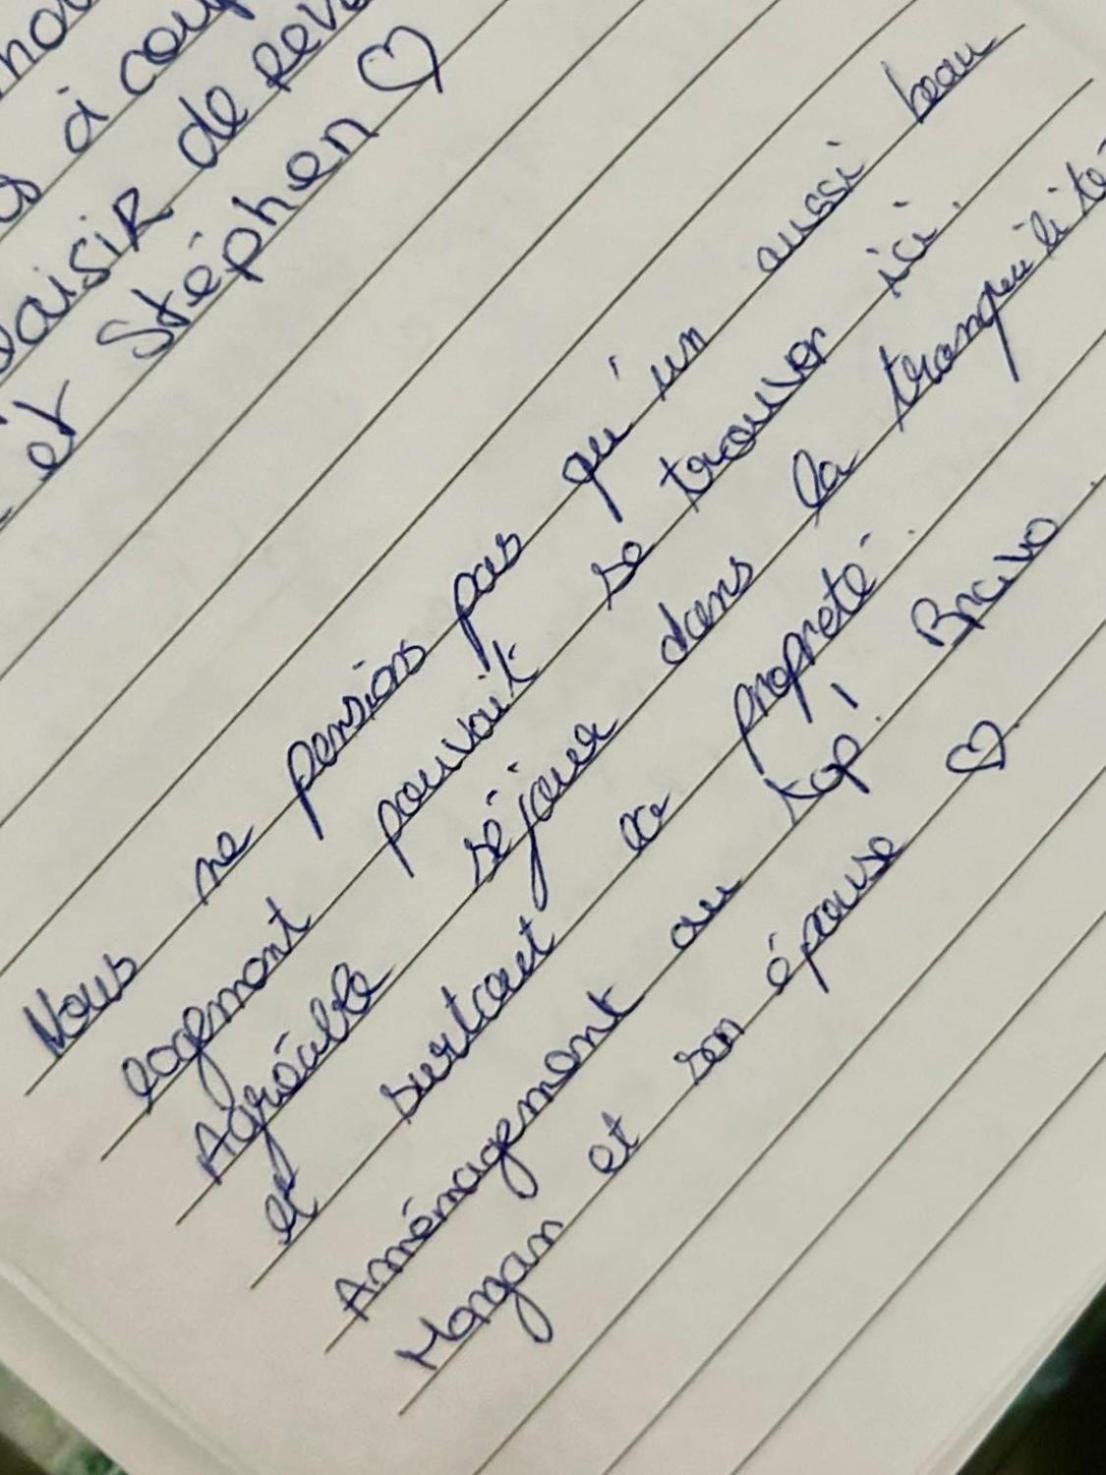 à coup
de rev
et Stéphen ♡
Nous ne pensions pas qu'un aussi beau
logement pouvait se trouver ici.
Agréable séjour dans la tranquilité
et surtout la propreté.
Aménagement au top! Bravo
Morgan et son épouse ♡